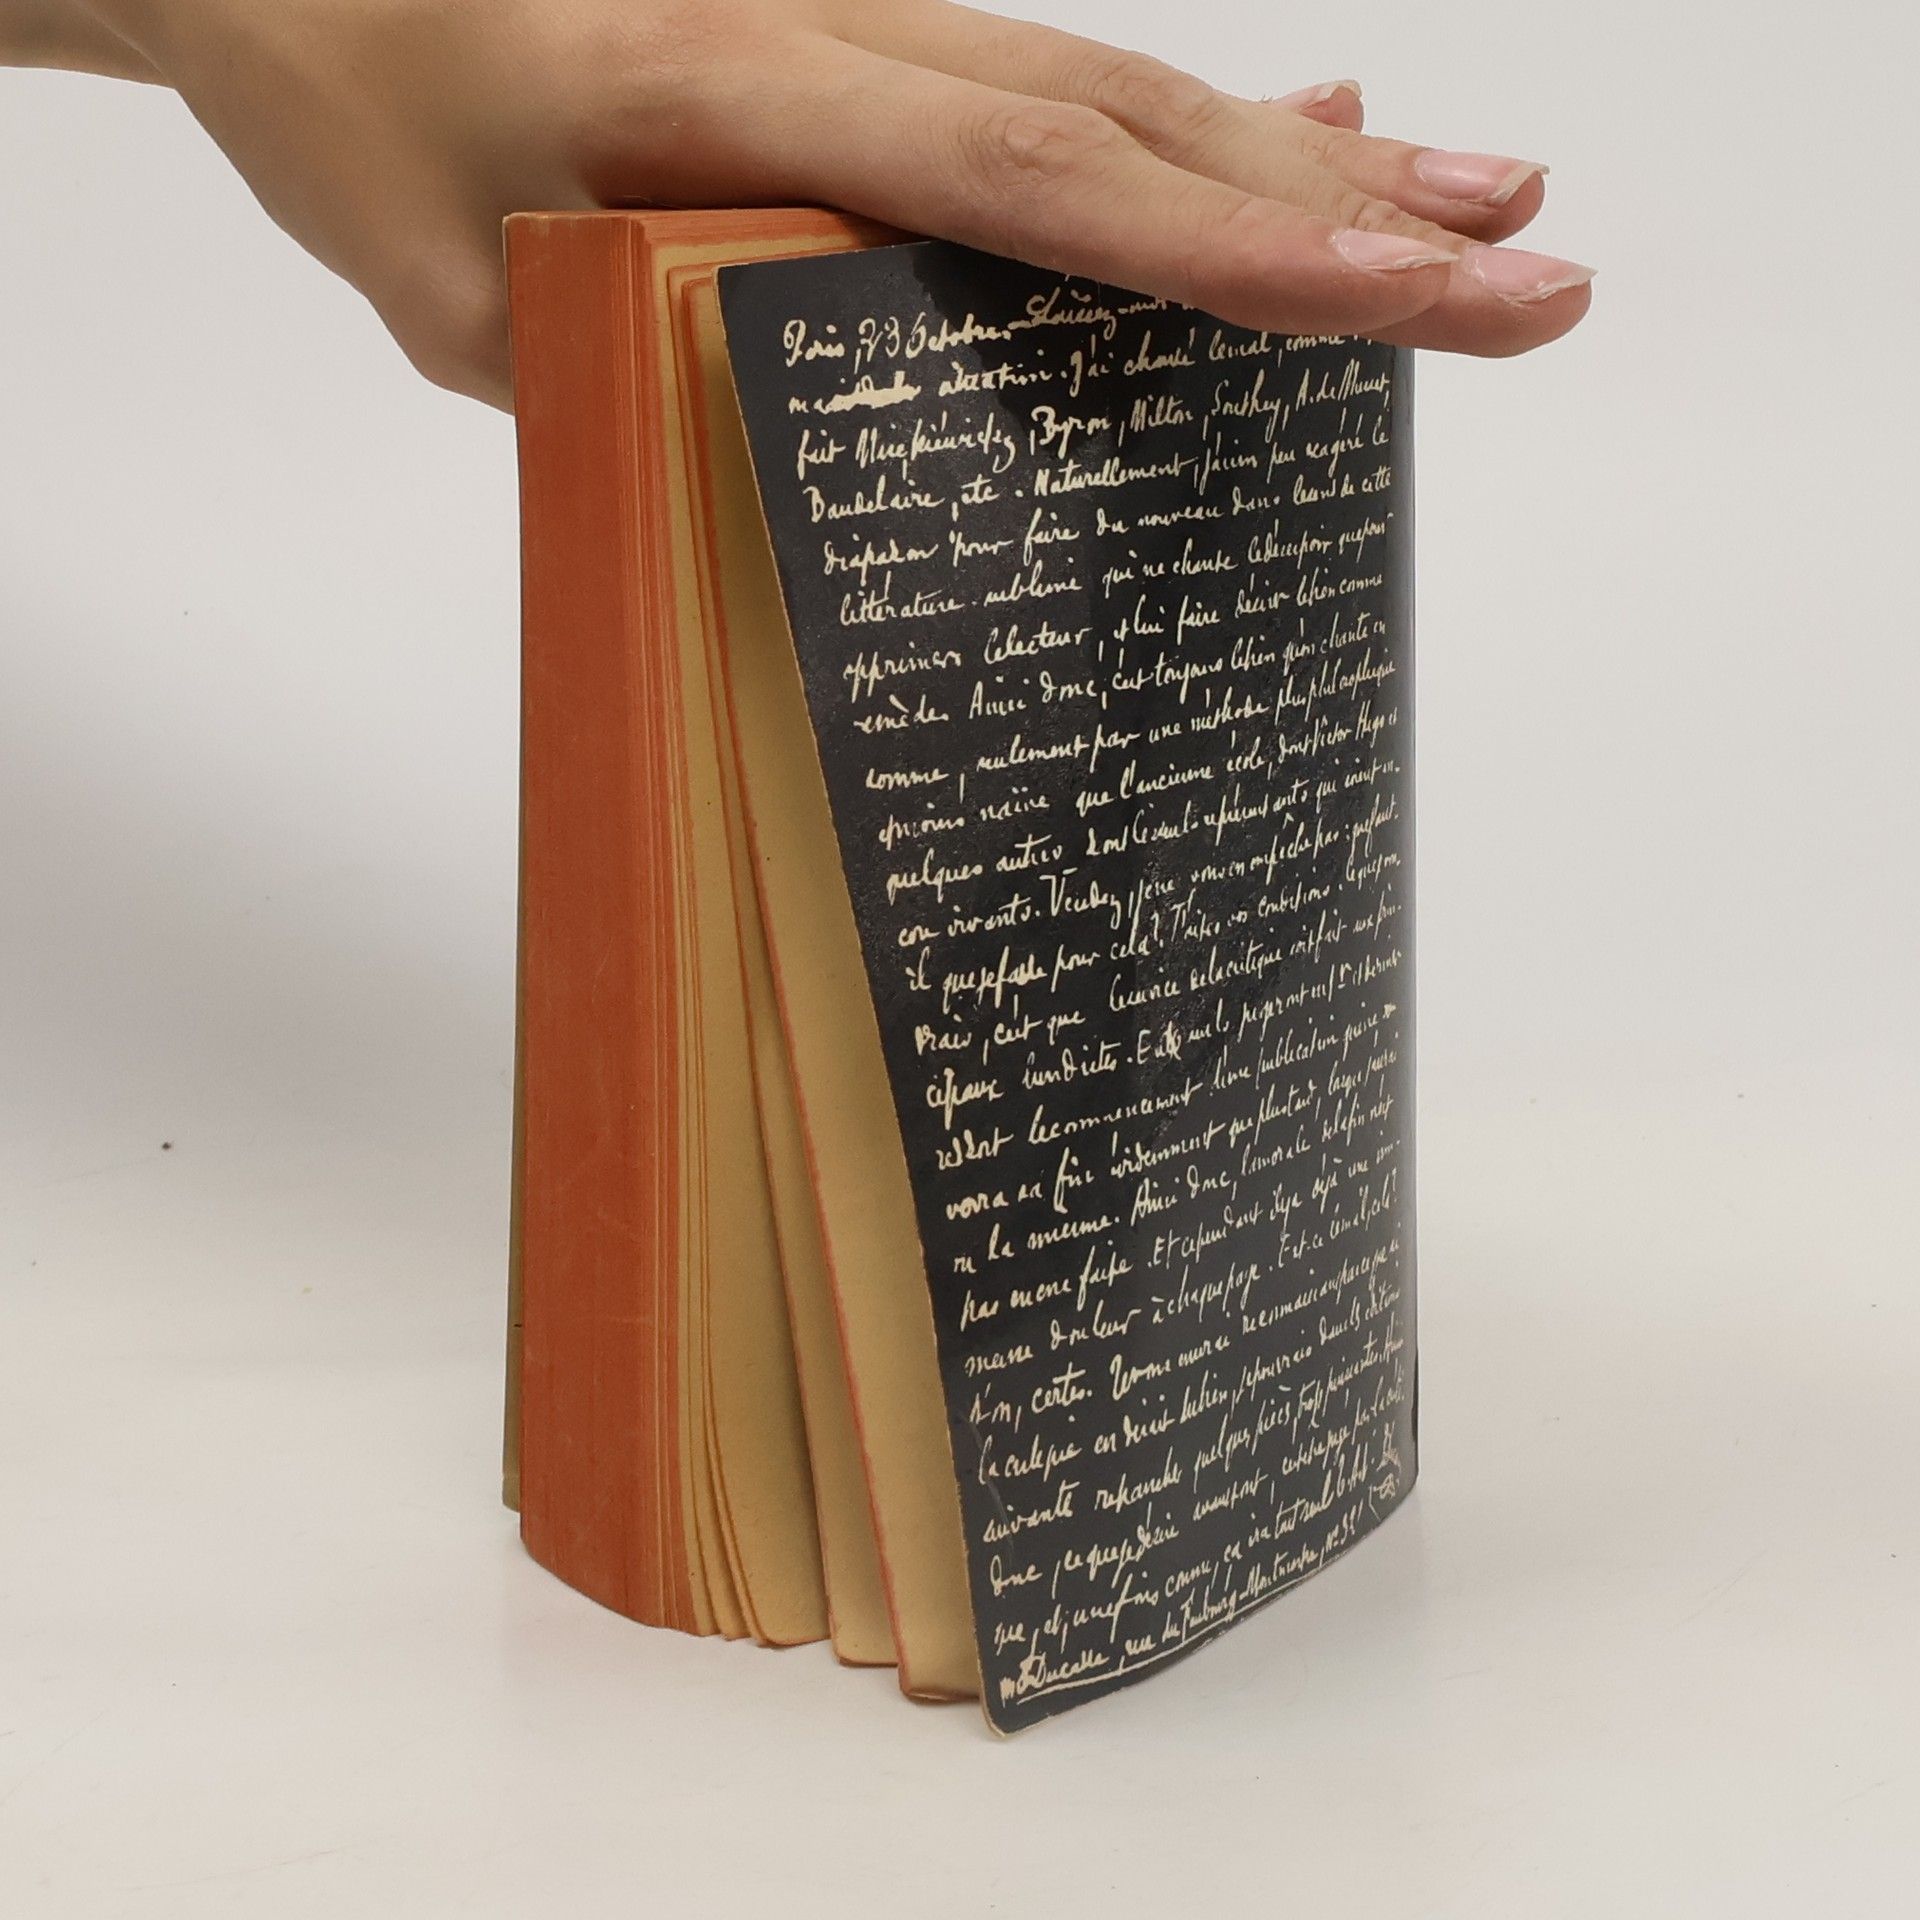 Paris, 23 Octobre. — Laissez-moi
ma attention. J'ai chanté le mal, comme
fait Miçkiéwickz, Byron, Milton, Southey, A. de Musset,
Baudelaire, etc. Naturellement, j'ai un peu exagéré le
diapason pour faire du nouveau dans le sens de cette
littérature sublime qui ne chante le désespoir que pour
opprimer le lecteur, et lui faire désirer le bien comme
remède. Ainsi donc, c'est toujours le bien qu'on chante en
somme, seulement par une méthode plus philosophique
et moins naïve que l'ancienne école, dont Victor Hugo et
quelques autres sont les seuls représentants qui soient en-
core vivants. Vendez, je ne vous en empêche pas : que faut-
il que je fasse pour cela? Faites vos conditions. Ce que je vou-
drais, c'est que le service de la critique soit fait aux prin-
cipaux lundistes. Eux seuls jugeront en 1er et dernier
ressort le commencement d'une publication qui ne
verra sa fin évidemment que plus tard, lorsque j'aurai
vu la mienne. Ainsi donc, la morale de la fin n'est
pas encore faite. Et cependant il y a déjà une im-
mense douleur à chaque page. Est-ce le mal, cela?
Non, certes. Je vous en serai reconnaissant parce que si
la critique en disait du bien, je pourrais dans les éditions
suivantes retrancher quelques pièces, trop puissantes. Ainsi
donc, ce que je désire avant tout, c'est être jugé par la criti-
que, et, une fois connu, ça ira tout seul. T. A. V.
I. Ducasse, rue du Faubourg-Montmartre, N° 32.